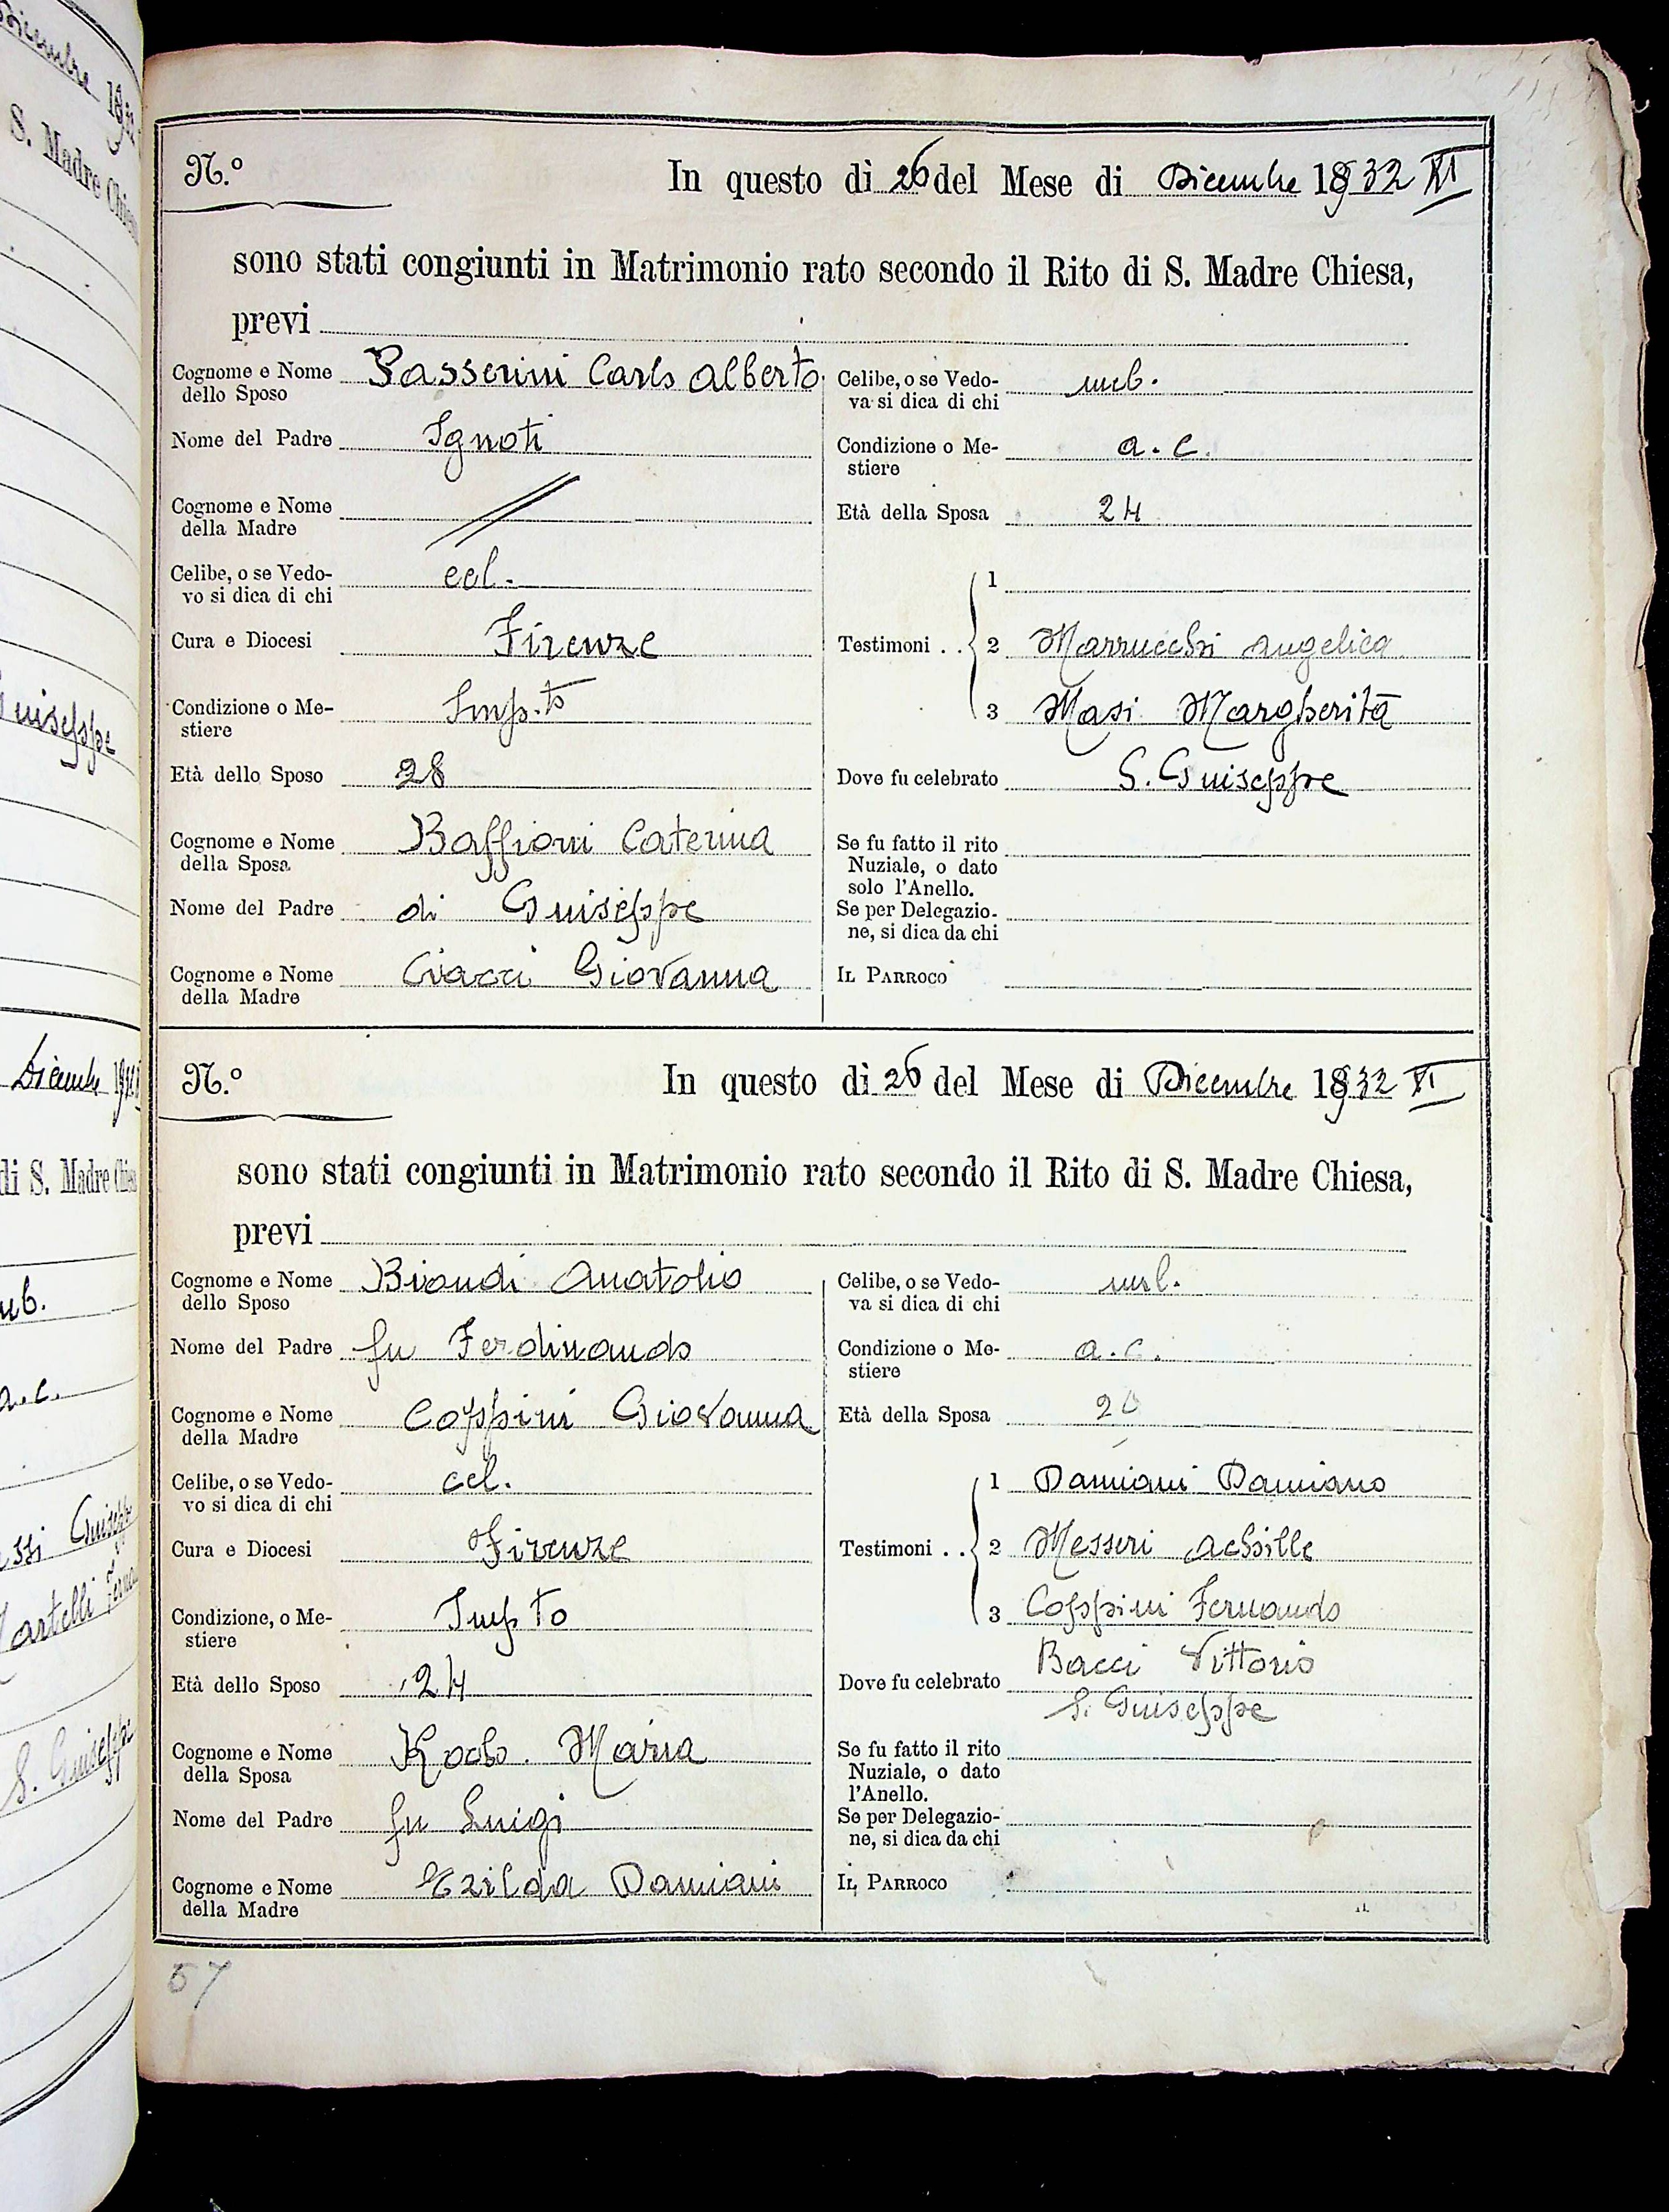 Dicembre 1932
S. Madre Chiesa
Guiseppe
Dicembre
di S. Madre Chiesa
nub.
a.c.
Guiseppe
Martelli
S. Guiseppe
N.º In questo dì 26 del Mese di Dicembre 1932 XI
sono stati congiunti in Matrimonio rato secondo il Rito di S. Madre Chiesa,
previ
Cognome e Nome dello Sposo Passerini Carlo Alberto
Nome del Padre Ignoti
Cognome e Nome della Madre //
Celibe, o se Vedo-
vo si dica di chi cel.
Cura e Diocesi Firenze
Condizione o Me-
stiere Imp.to
Età dello Sposo 28
Cognome e Nome della Sposa Baffioni Caterina
Nome del Padre di Guiseppe
Cognome e Nome della Madre Ciacci Giovanna
Celibe, o se Vedo-
va si dica di chi nub.
Condizione o Me-
stiere a.c.
Età della Sposa 24
Testimoni . . 1
2 Marrucchi Angelica
3 Masi Margherita
Dove fu celebrato S. Guiseppe
Se fu fatto il rito
Nuziale, o dato
solo l'Anello.
Se per Delegazio-
ne, si dica da chi
IL PARROCO
N.º In questo dì 26 del Mese di Dicembre 1932 XI
sono stati congiunti in Matrimonio rato secondo il Rito di S. Madre Chiesa,
previ
Cognome e Nome dello Sposo Biondi Anatolio
Nome del Padre fu Ferdinando
Cognome e Nome della Madre Coppini Giovanna
Celibe, o se Vedo-
vo si dica di chi cel.
Cura e Diocesi Firenze
Condizione, o Me-
stiere Imp to
Età dello Sposo 24
Cognome e Nome della Sposa Koch Maria
Nome del Padre fu Luigi
Cognome e Nome della Madre Ezilda Damiani
Celibe, o se Vedo-
va si dica di chi nub.
Condizione o Me-
stiere a.c.
Età della Sposa
Testimoni . . 1 Damiani Damiano
2 Messeri Achille
3 Coppini Fernando
Bacci Vittorio
Dove fu celebrato
S. Guiseppe
Se fu fatto il rito
Nuziale, o dato
l'Anello.
Se per Delegazio-
ne, si dica da chi
IL PARROCO
57